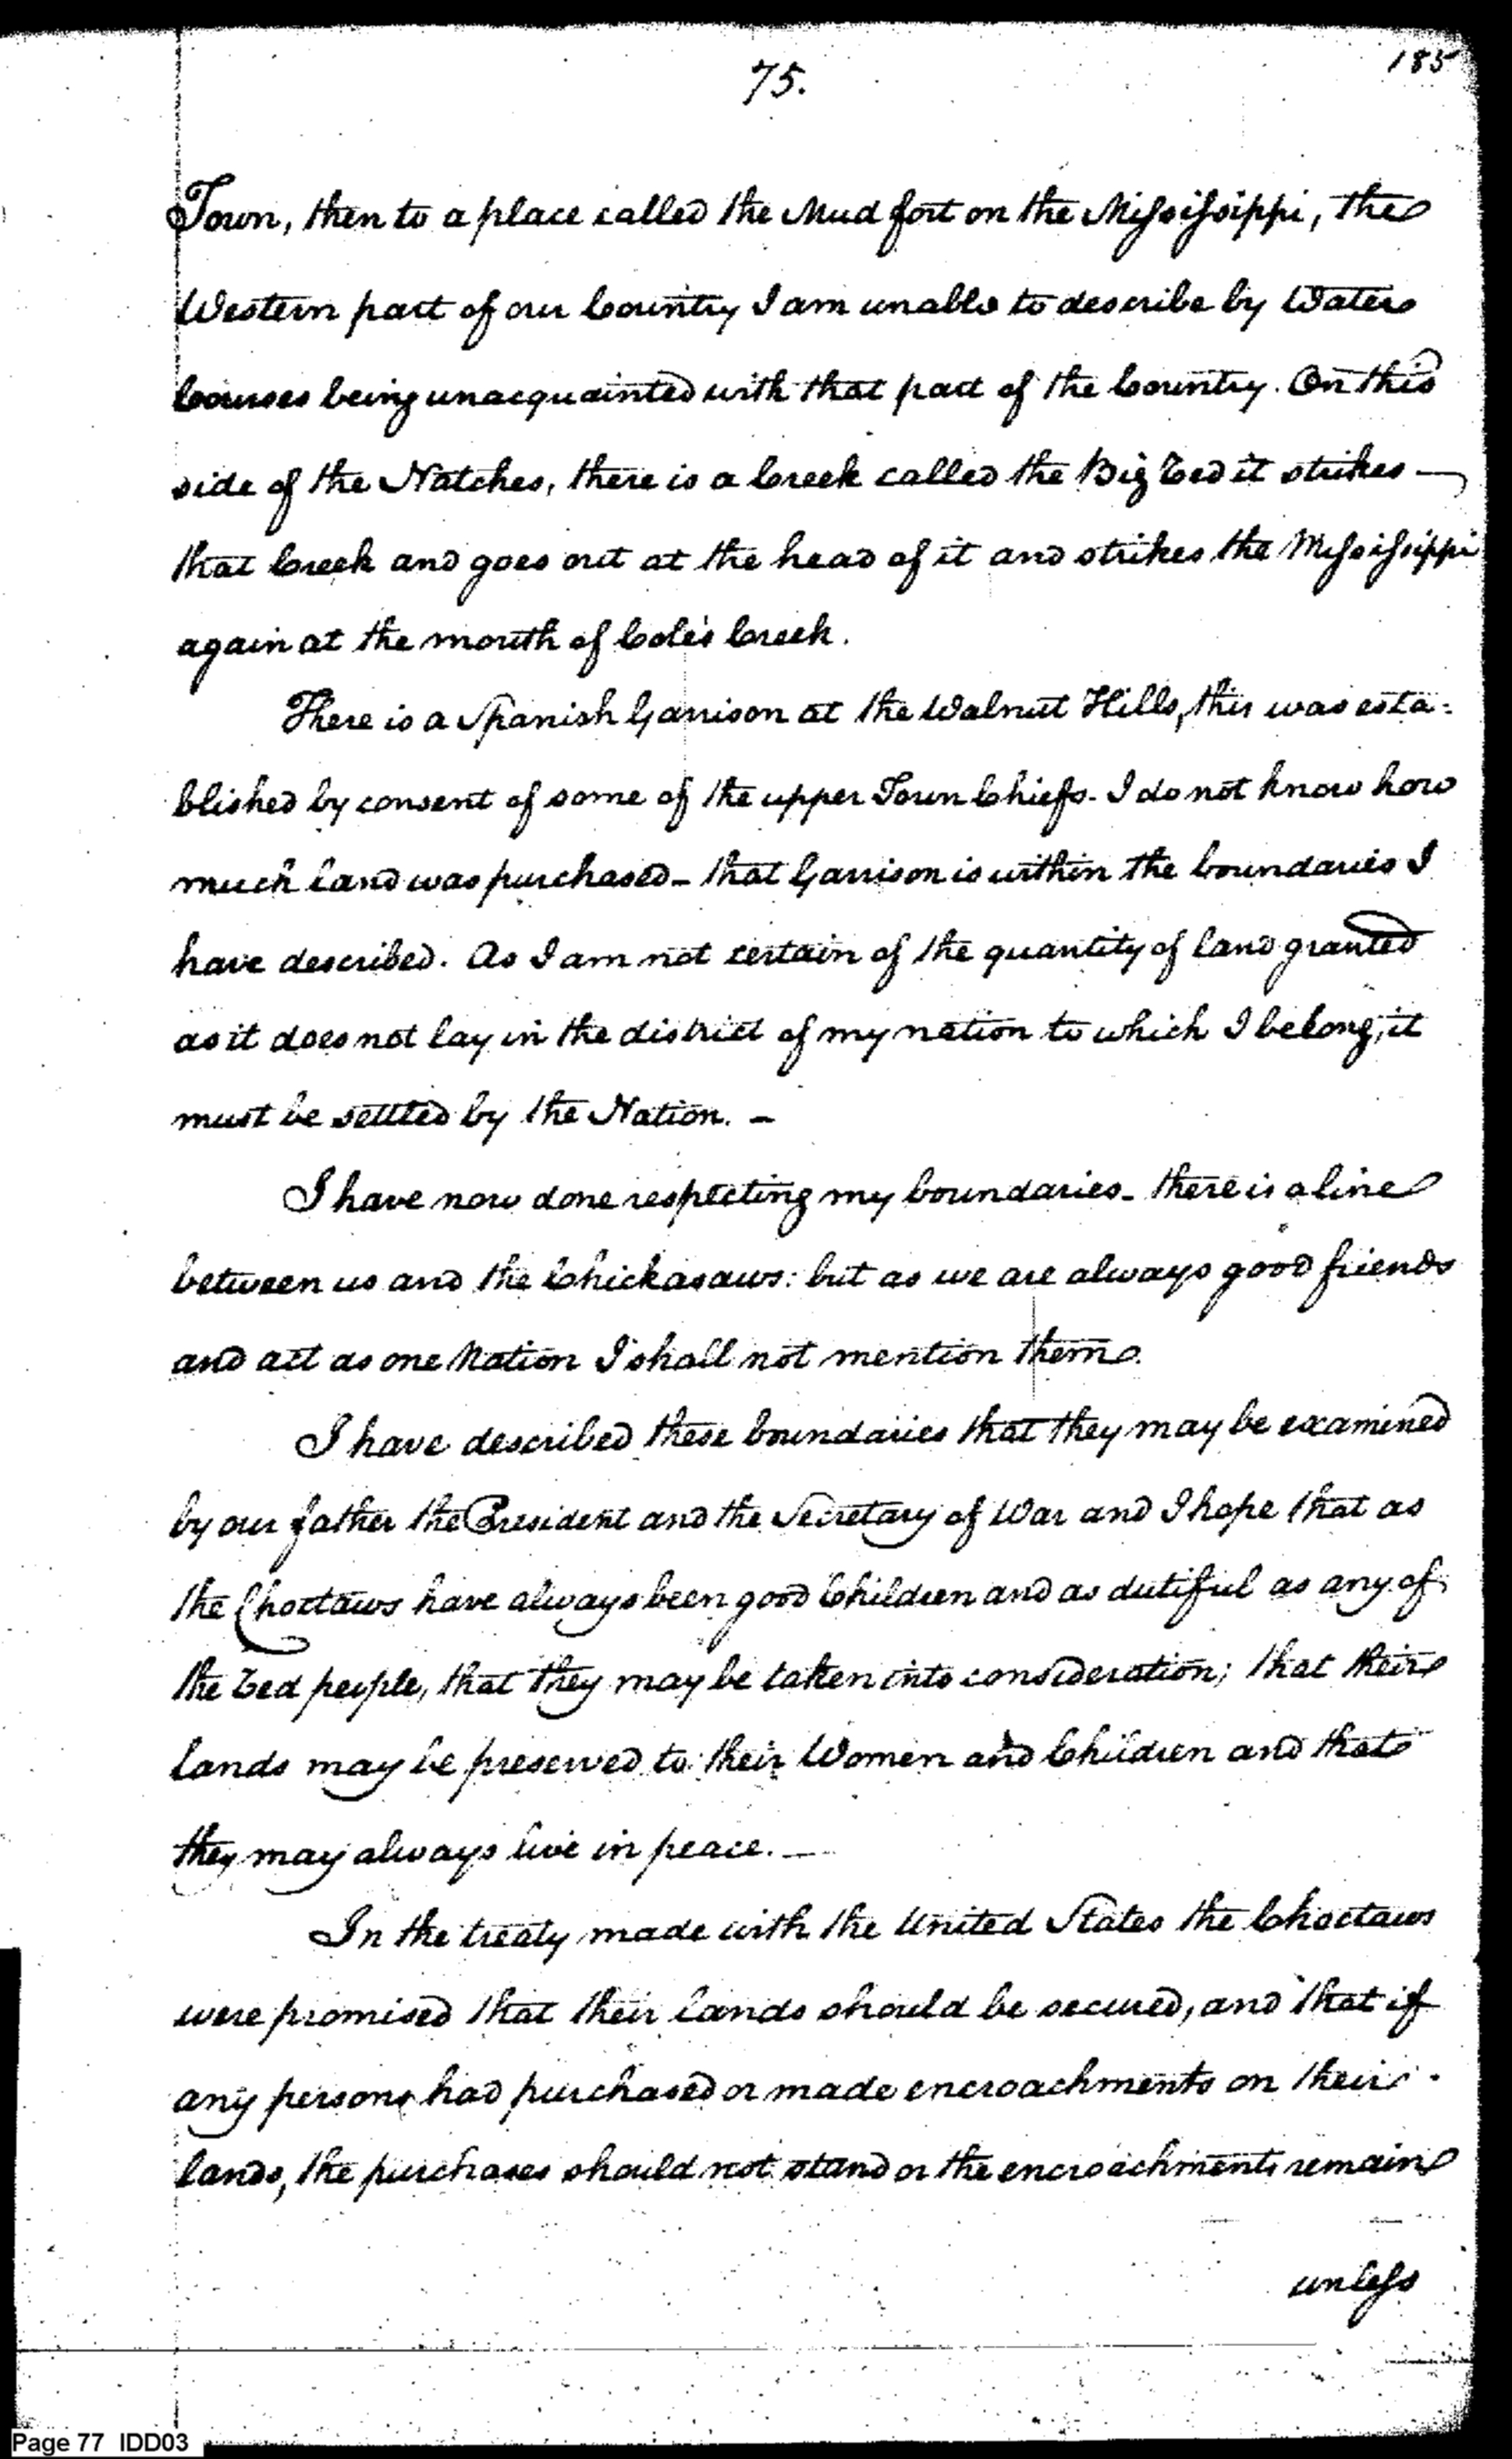 75.
185
Town, then to a place called the Mud fort on the Mississippi, the
Western part of our Country I am unable to describe by Water
Courses being unacquainted with that part of the Country. On this
side of the Natches, there is a Creek called the Big Red it strikes —
that Creek and goes out at the head of it and strikes the Mississippi
again at the mouth of Cole's Creek.
There is a Spanish Garrison at the Walnut Hills, this was esta:
blished by consent of some of the upper Town Chiefs. I do not know how
much land was purchased – that Garrison is within the boundaries I
have described. As I am not certain of the quantity of land granted
as it does not lay in the district of my nation to which I belong, it
must be settled by the Nation. –
I have now done respecting my boundaries – there is a line
between us and the Chickasaws: but as we are always good friends
and act as one Nation I shall not mention them.
I have described these boundaries that they may be examined
by our father the President and the Secretary of War and I hope that as
the Choctaws have always been good Children and as dutiful as any of
the Red people, that they may be taken into consideration; that their
lands may be preserved to their Women and Children and that
they may always live in peace. —
In the treaty made with the United States the Choctaws
were promised that their lands should be secured, and that if
any persons had purchased or made encroachments on their
lands, the purchases should not stand or the encroachments remain
unless
Page 77 IDD03